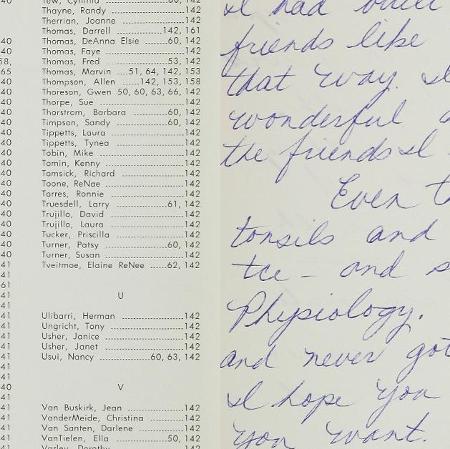 Tow, Cynthia 60, 142
Thayne, Randy 142
Therrian, Joanne 142
Thomas, Darrell 142, 161
40 Thomas, DeAnna Elsie 60, 142
40 Thomas, Faye 142
58, Thomas, Fred 53, 142
65 Thomas, Marvin 51, 64, 142, 153
40 Thompson, Allen 142, 153, 158
40 Thoreson, Gwen 50, 60, 63, 66, 142
40 Thorpe, Sue 142
40 Thorstrom, Barbara 60, 142
40 Timpson, Sandy 60, 142
40 Tippetts, Laura 142
40 Tippetts, Tynea 142
40 Tobin, Mike 142
40 Tomin, Kenny 142
40 Tomsick, Richard 142
40 Toone, ReNae 142
40 Torres, Ronnie 142
40 Truesdell, Larry 61, 142
40 Trujillo, David 142
40 Trujillo, Laura 142
40 Tucker, Priscilla 142
40 Turner, Patsy 60, 142
40 Turner, Susan 142
41 Tveitmoe, Elaine ReNee 62, 142
41
61
41 U
41
41 Ulibarri, Herman 142
41 Ungricht, Tony 142
41 Usher, Janice 142
41 Usher, Janet 142
41 Usui, Nancy 60, 63, 142
41
41
40 V
41
41 Van Buskirk, Jean 142
41 VanderMeide, Christina 142
41 Van Santen, Darlene 142
41 VanTielen, Ella 50, 142
41 Varley, Dorothy
I had
friends like
that way. I
wonderful
the friends I
Even
tonsils and
tce - and
Physiology.
and never got
I hope you
you want.